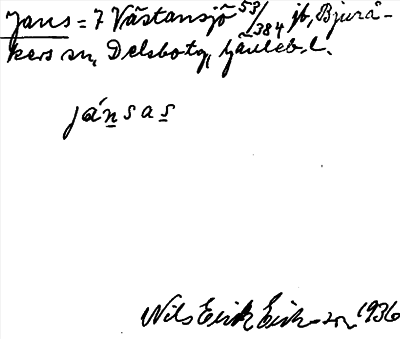 Jans = 7 Västansjö 53/1384 jb, Bjurå-
kers sn, Delsbo tg, Gävleb. l.
jánsas
Nils Erik Eriksson 1936